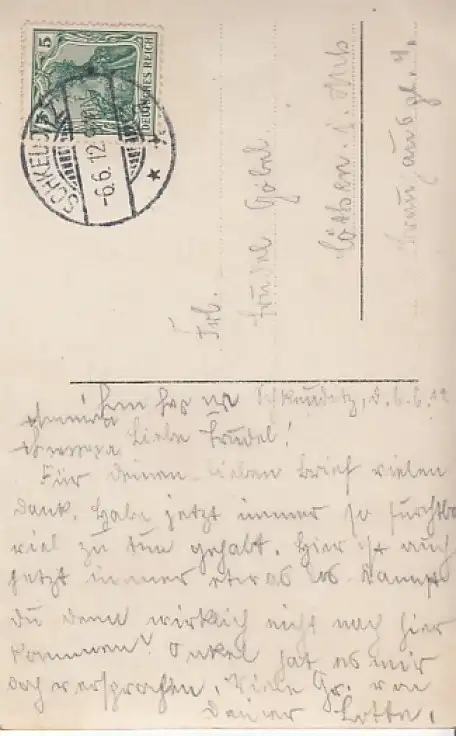 5
DEUTSCHES REICH
SCHKEUDITZ
-6.6.12
Frl.
Trudel Göbel
Cöthen i. Anh.
Schkeuditz, d. 6.6.12
Liebe Trudel!
Für deinen lieben Brief vielen
Dank. Habe jetzt immer so furchtbar
viel zu tun gehabt. Hier ist auch
jetzt immer etwas los. Kannst
du denn wirklich nicht nach hier
kommen? Onkel hat es mir
doch versprochen. Viele Gr. von
Deiner Lotte.